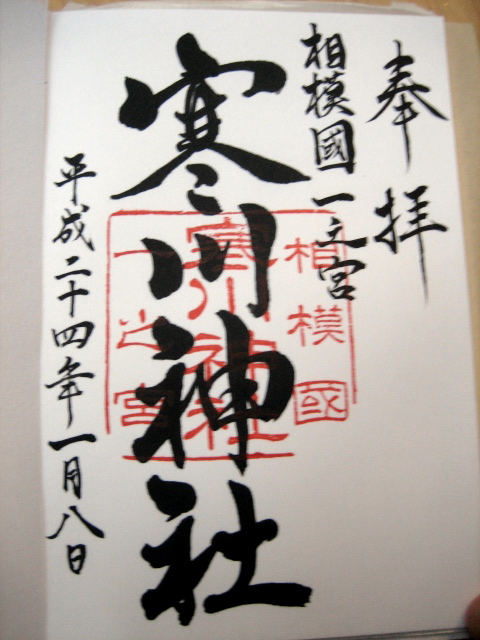 奉拝
相模國一之宮
寒川神社
平成二十四年一月八日
相模國
寒川神社
一之宮